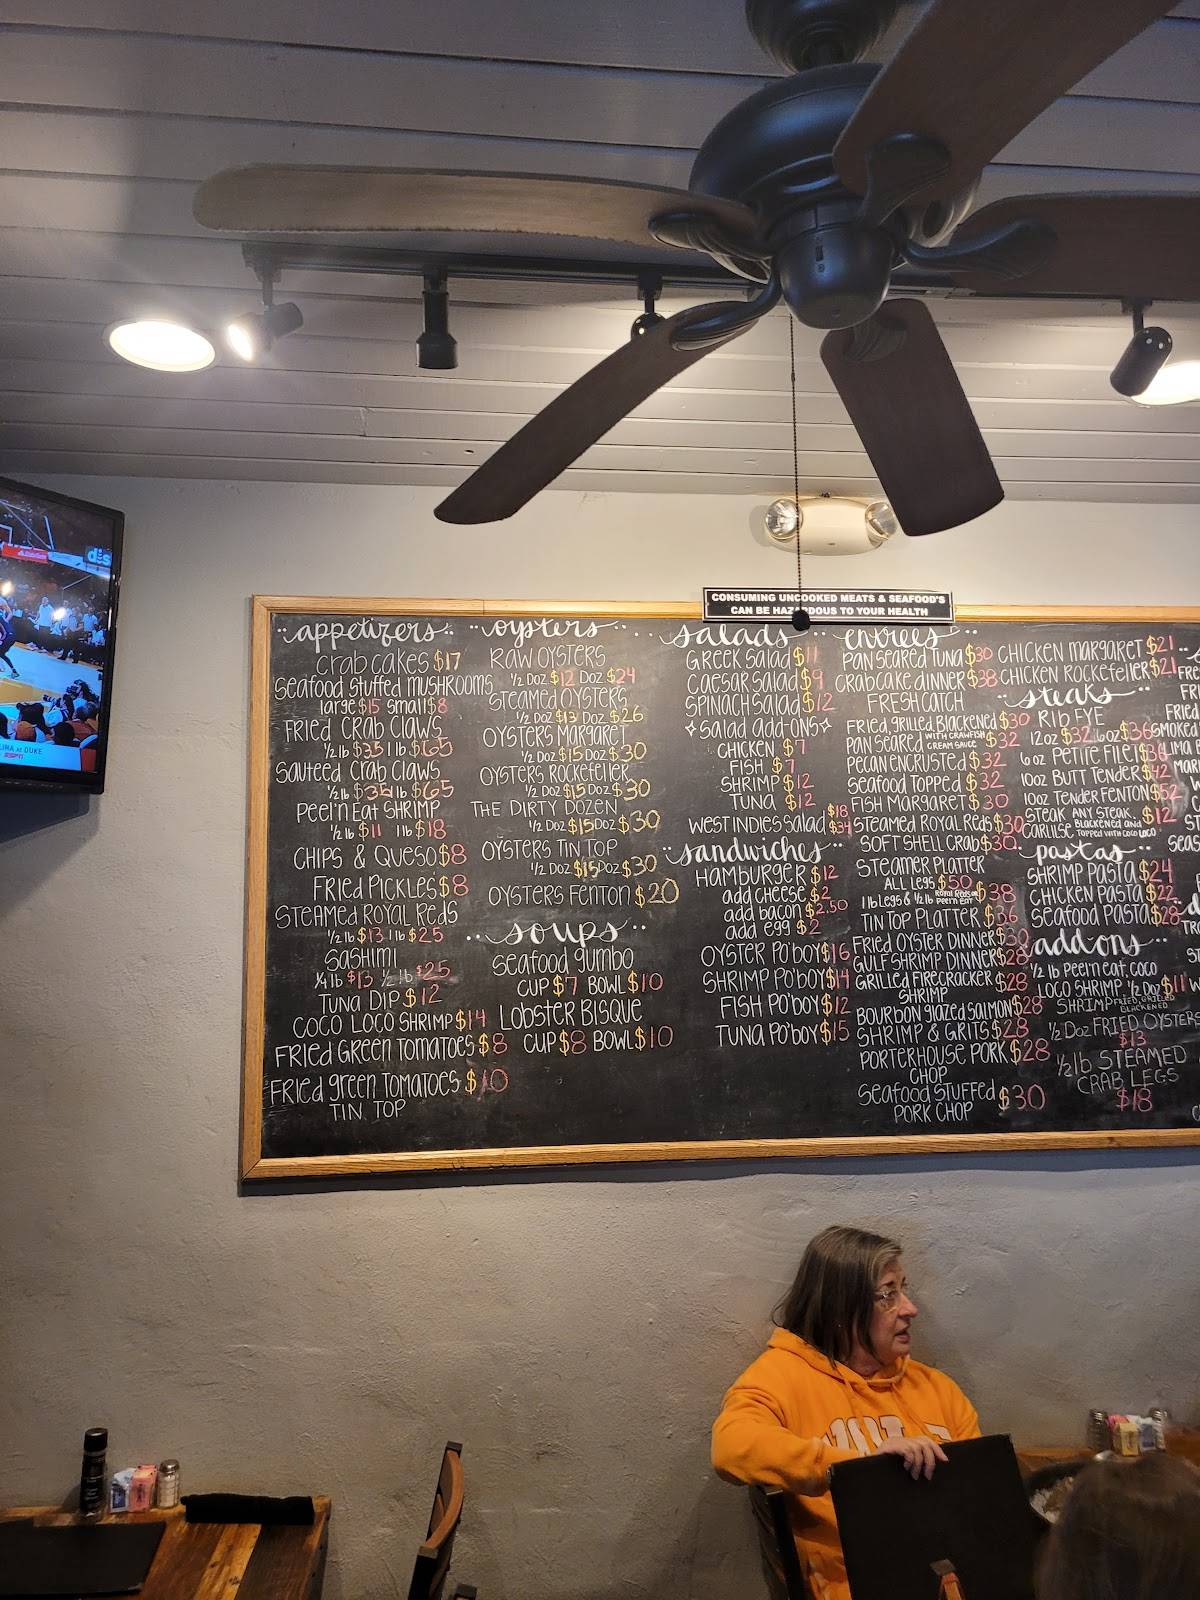 CONSUMING UNCOOKED MEATS & SEAFOOD'S
CAN BE HAZARDOUS TO YOUR HEALTH
appetizers
crab cakes $17
Seafood Stuffed MUSHROOMS
large $15 small $8
FRIED CRAB CLAWS
1/2 lb $35 1 lb $65
Sauteed CRAB Claws
1/2 lb $35 1 lb $65
Peel'n Eat SHRIMP
1/2 lb $11 1 lb $18
CHIPS & QUESO $8
FRIED PICKLES $8
STEAMED ROYAL REDS
1/2 lb $13 1 lb $25
SASHIMI
1/4 lb $13 1/2 lb $25
TUNA DIP $12
COCO LOCO SHRIMP $14
FRIED GREEN TOMATOES $8
FRIED green TOMATOES $10
TIN TOP
oysters
RAW OYSTERS
1/2 DOZ $12 DOZ $24
STEAMED OYSTERS
1/2 DOZ $13 DOZ $26
OYSTERS MARGARET
1/2 DOZ $15 DOZ $30
OYSTERS ROCKEFELLER
1/2 DOZ $15 DOZ $30
THE DIRTY DOZEN
1/2 DOZ $15 DOZ $30
OYSTERS TIN TOP
1/2 DOZ $15 DOZ $30
OYSTERS FENTON $20
soups
Seafood gumbo
CUP $7 BOWL $10
LOBSTER BISQUE
CUP $8 BOWL $10
salads
GREEK Salad $11
CAESAR SALAD $9
SPINACH SALAD $12
SALAD ADD-ONS
CHICKEN $7
FISH $7
SHRIMP $12
TUNA $12
WEST INDIES Salad $18 $34
sandwiches
HAMBURGER $12
add cheese $2
add bacon $2.50
add egg $2
OYSTER PO'BOY $16
SHRIMP PO'BOY $14
FISH PO'BOY $12
TUNA PO'BOY $15
entrees
PAN SEARED TUNA $30
CRABCAKE DINNER $38
FRESH CATCH
FRIED, GRILLED BLACKENED $30
PAN SEARED WITH CRAWFISH CREAM SAUCE $32
PECAN ENCRUSTED $32
SEAFOOD TOPPED $32
FISH MARGARET $30
STEAMED ROYAL REDS $30
SOFT SHELL CRAB $30
STEAMER PLATTER
ALL LEGS $50
1 lb Legs & 1/2 lb Royal Reds or Peel'n eat $38
TIN TOP PLATTER $36
FRIED OYSTER DINNER $30
GULF SHRIMP DINNER $28
GRILLED FIRECRACKER $28
SHRIMP
BOURBON GLAZED SALMON $28
SHRIMP & GRITS $28
PORTERHOUSE PORK $28
CHOP
SEAFOOD STUFFED $30
PORK CHOP
CHICKEN MARGARET $21
CHICKEN ROCKEFELLER $21
steaks
RIB EYE
12oz $32 16oz $36
6oz PETITE FILET
10oz BUTT TENDER $42
10oz TENDER FENTON $52
STEAK ANY STEAK
CARLISE BLACKENED and TOPPED WITH COCO LOCO $12
pastas
SHRIMP PASTA $24
CHICKEN PASTA $22
SEAFOOD PASTA $28
add ons
1/2 lb Peel'n eat, COCO
LOCO SHRIMP, 1/2 DOZ $11
SHRIMP FRIED, GRILLED BLACKENED
1/2 DOZ FRIED OYSTERS
$13
1/2 lb STEAMED
CRAB LEGS
$18
AT DUKE
ESPN